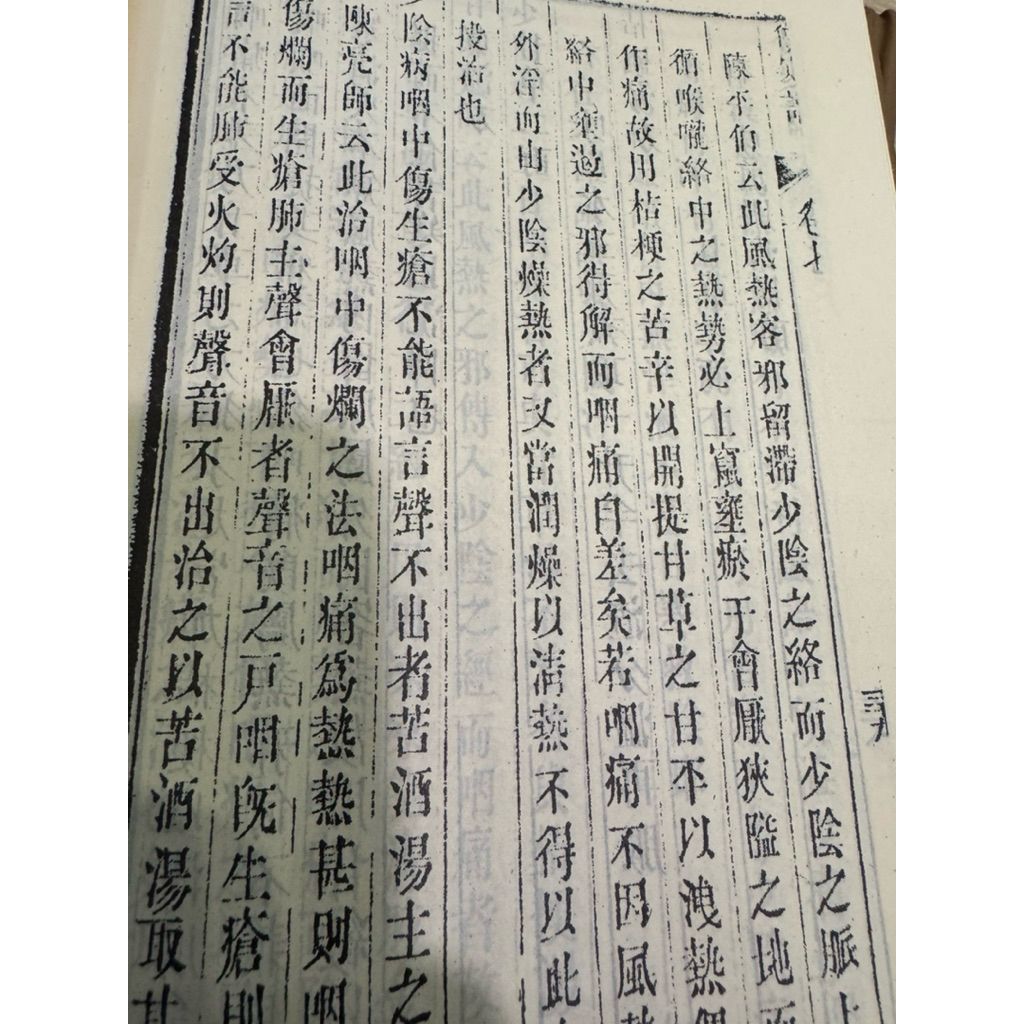 卷七
三九
陳平伯云此風熱客邪留滯少陰之絡而少陰之脈上
循喉嚨絡中之熱勢必上竄壅瘀于會厭狹隘之地而
作痛故用桔梗之苦辛以開提甘草之甘平以洩熱俾
絡中壅遏之邪得解而咽痛自差矣若咽痛不因風熱
外淫而由少陰燥熱者又當潤燥以清熱不得以此
投治也
少陰病咽中傷生瘡不能語言聲不出者苦酒湯主之
陳亮師云此治咽中傷爛之法咽痛爲熱熱甚則咽
傷爛而生瘡肺主聲會厭者聲音之戸咽旣生瘡則
聲不能肺受火灼則聲音不出治之以苦酒湯取其